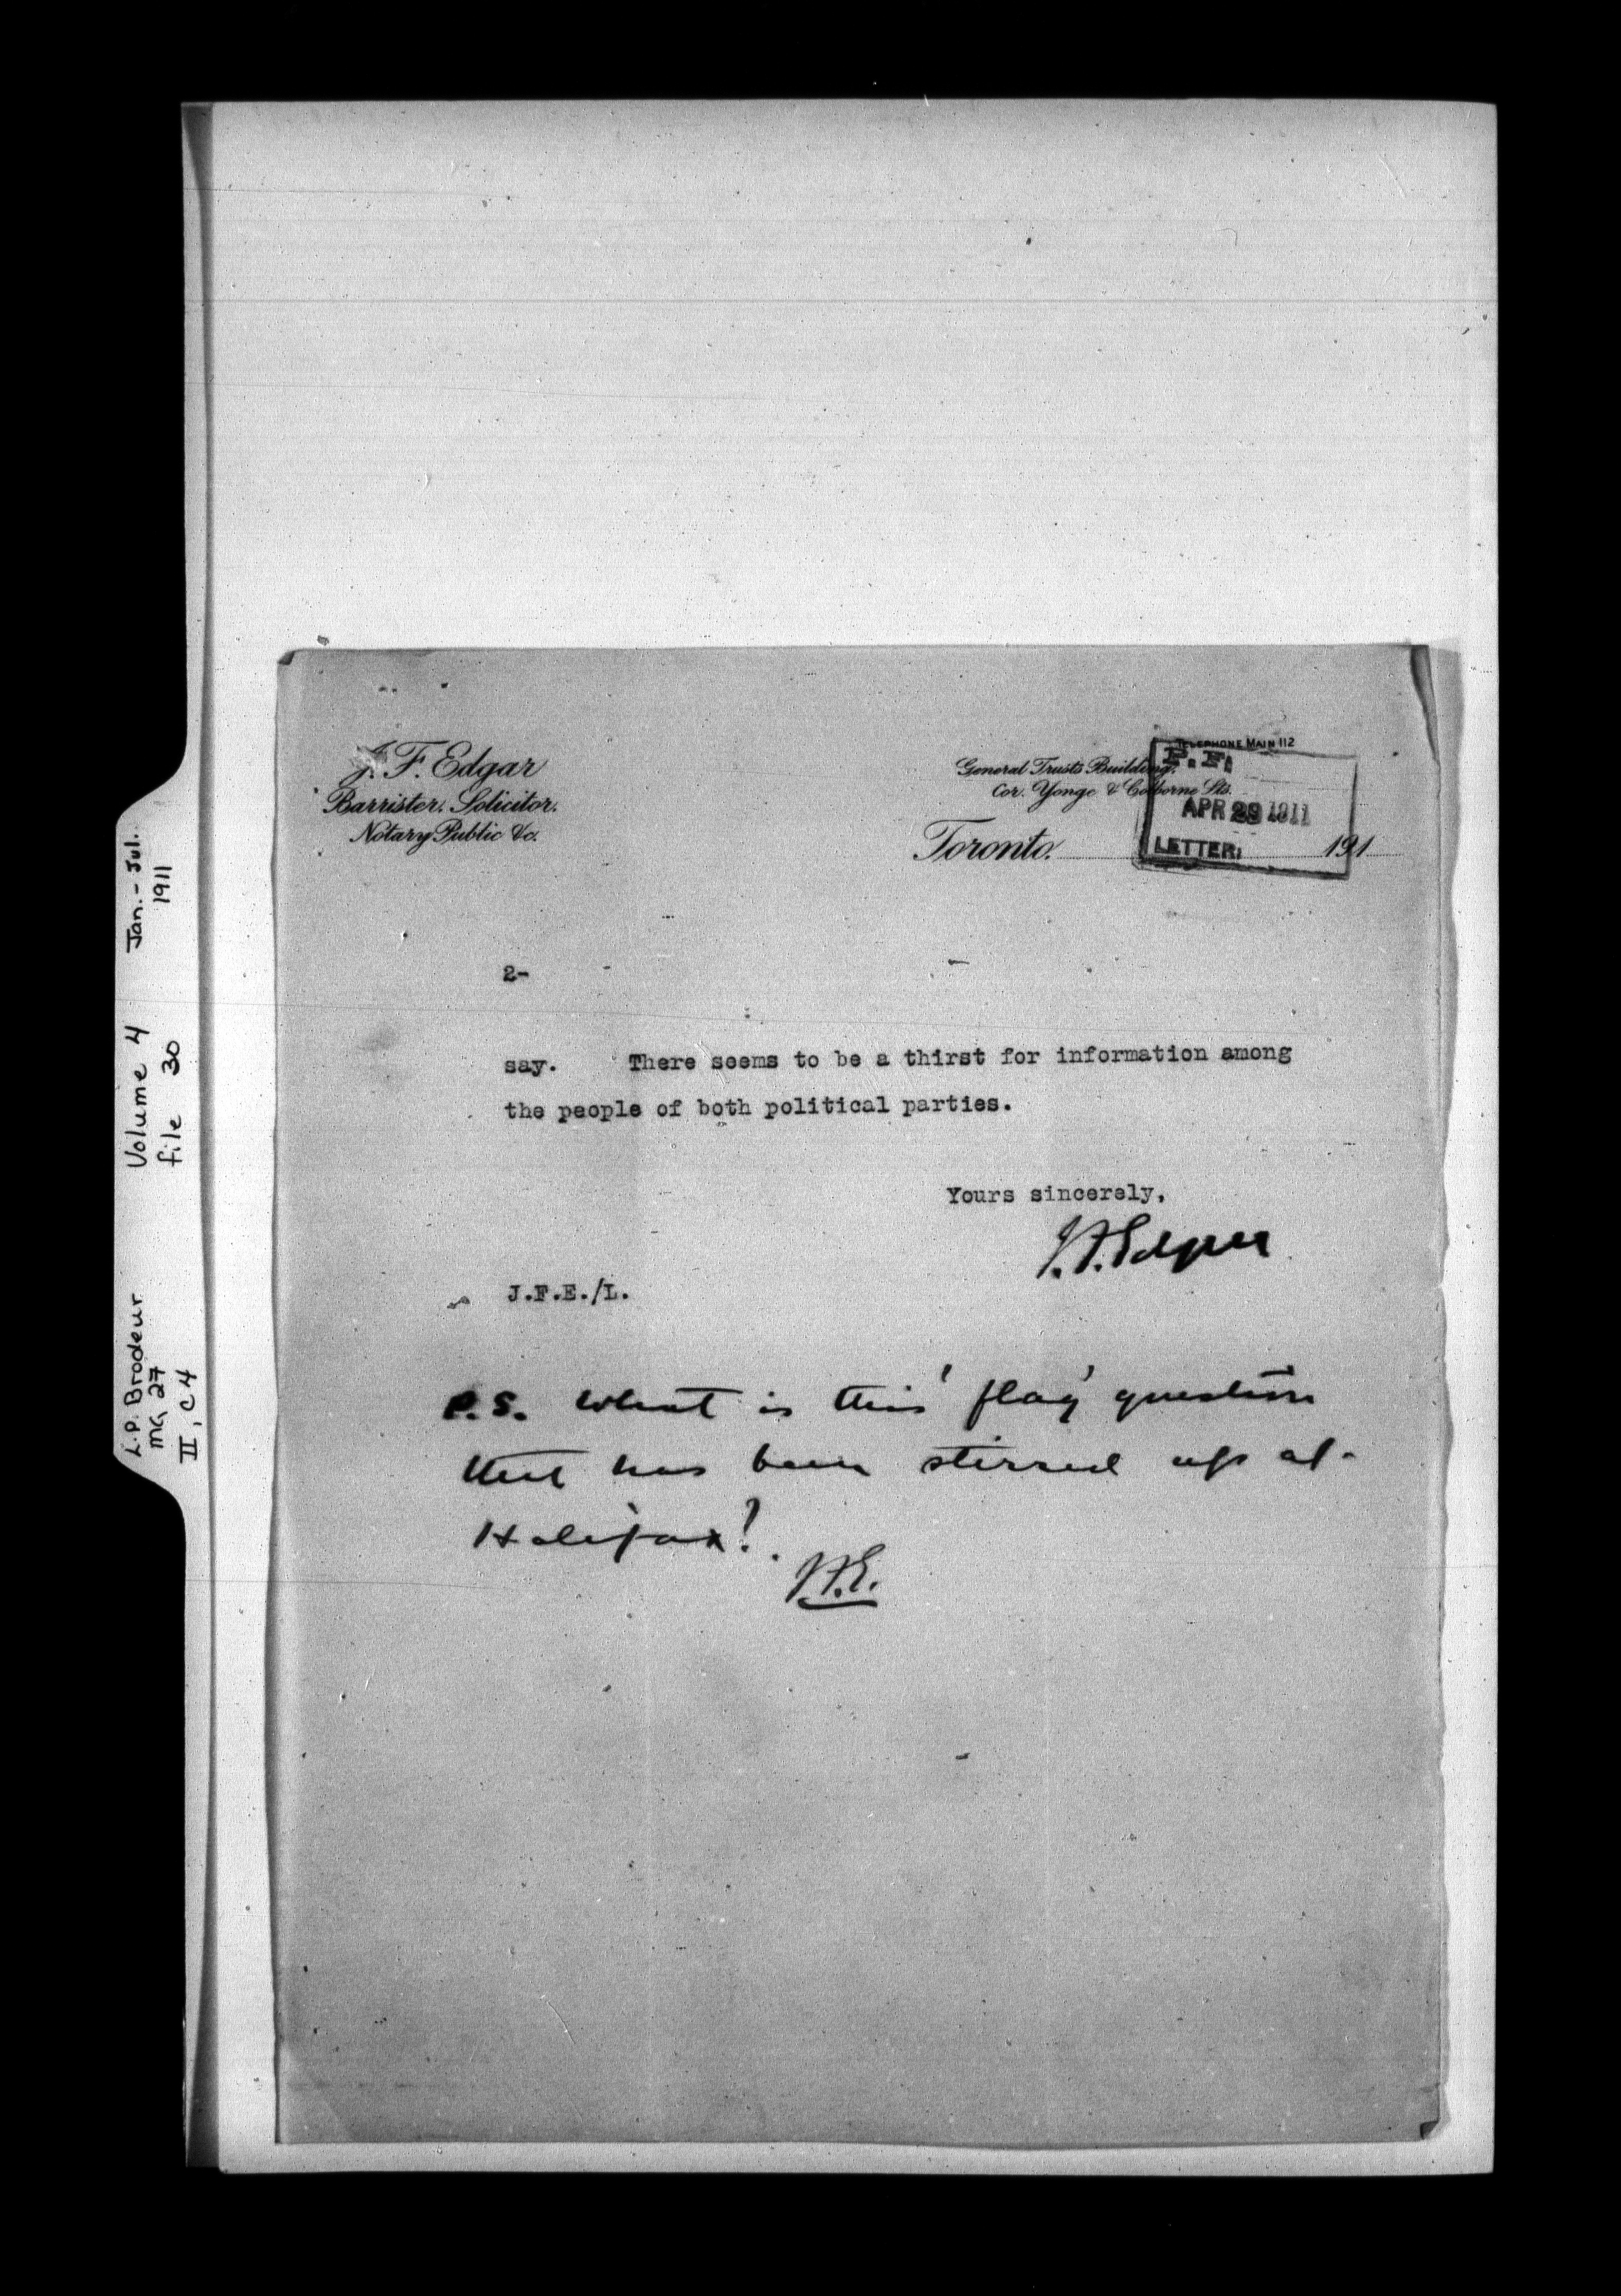 L.P. Brodeur
MG 27
II, C 4
Volume 4
file 30
Jan. - Jul.
1911
J. F. Edgar
Barrister. Solicitor.
Notary Public &c.
TELEPHONE MAIN 112
General Trusts Building,
Cor. Yonge & Colborne Sts.
Toronto. 191
P. F.
APR 29 1911
LETTER.
2-
say. There seems to be a thirst for information among
the people of both political parties.
Yours sincerely,
J.F. Edgar
J.F.E./L.
P.S. What is this 'flag' question
that has been stirred up at
Halifax?
J.F.E.